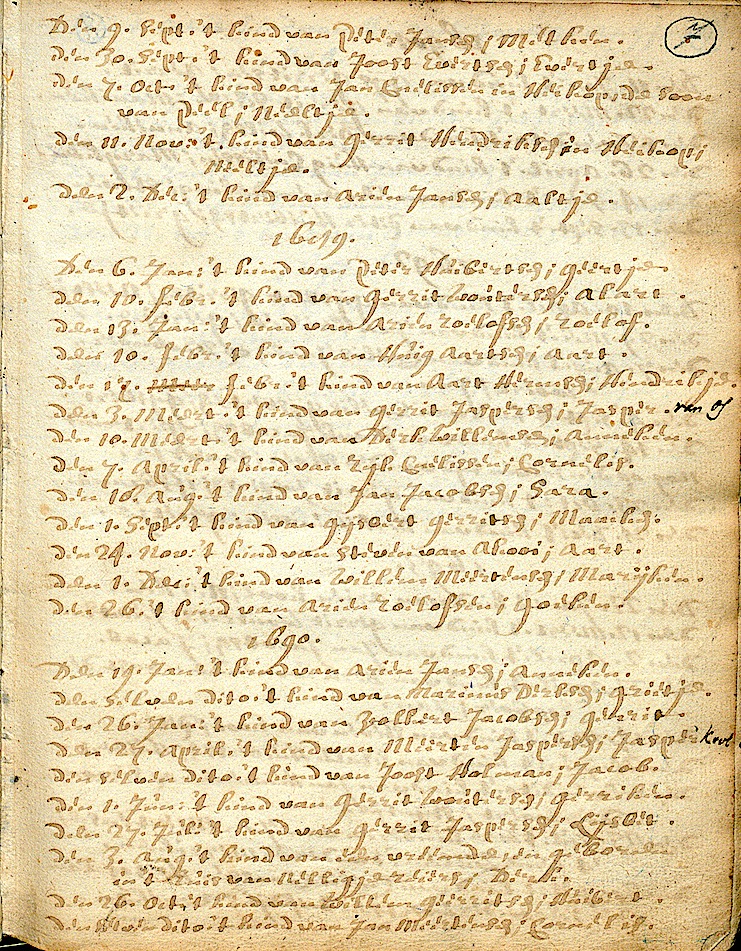 Den 9. Sept: 't kind van Peter Jansz; Metken.
den 30. Sept: 't kind van Joost Evertsz; Evertje.
den 7. Oct: 't kind van Jan Cnelissen in Heikop; de soon
van Peel; Neeltje.
den 11. Nov: 't kind van Gerrit Hendriksz in Heikop;
Neeltje.
den 2. Dec: 't kind van Arien Jansz; Aaltje.
1689.
Den 6. Jan: 't kind van Peter Huibertsz; Geertje.
den 10. Febr: 't kind van Gerrit Woutersz; Alart.
den 13. Jan: 't kind van Arien Roelofsz; Roelof.
den 10. Febr: 't kind van Huig Aartsz; Aart.
den 17. Febr: 't kind van Aart Hermsz; Hendrikje.
den 3. Meert: 't kind van Gerrit Jaspersz; Jasper. van Os
den 10. Meert: 't kind van Derk Willemsz; Anneken.
den 7. April: 't kind van Ryk Cnelissen; Cornelis.
den 16. Aug: 't kind van Jan Jacobsz; Sara.
den 1. Sept: 't kind van Gysbert Gerritsz; Maaike.
den 24. Nov: 't kind van Steven van Akooi; Aart.
den 1. Dec: 't kind van Willem Meertensz; Maryken.
den 26. 't kind van Arien Roelofsen; Goeken.
1690.
Den 19. Jan: 't kind van Arien Jansz; Anneken.
den selven dito: 't kind van Marinus Derksz; Grietje.
den 26. Jan: 't kind van Volkert Jacobsz; Gerrit.
den 27. April: 't kind van Meerten Jaspersz; Jasper Krol
den selven dito: 't kind van Joost Holman; Jacob.
den 1. Jun: 't kind van Gerrit Woutersz; Gerriken.
den 27. Jul: 't kind van Gerrit Jaspersz; Lijsbet.
den 3. Aug: 't kind van een vreemde, en geboren
in 't huis van Nelligje Reiers; Derk.
den 26. Oct: 't kind van Willem Gerritsz; Huibert.
den selven dito: 't kind van Jan Meertensz; Cornelis.